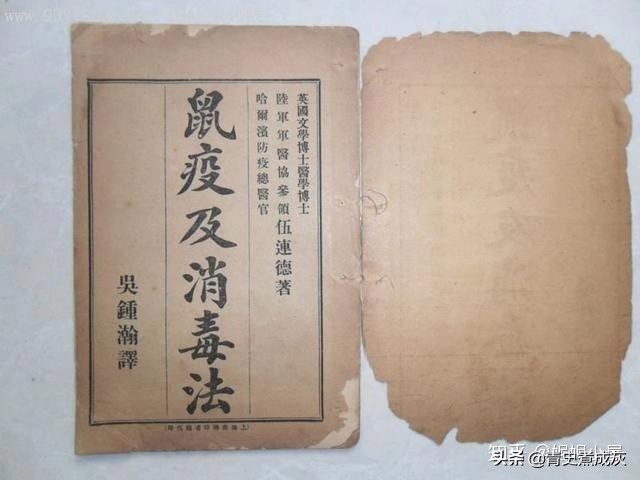 英國文學博士醫學博士
陸軍軍醫協參領 伍連德著
哈爾濱防疫總醫官
鼠疫及消毒法
吳鍾瀚譯
知乎
头条 @青史煮成灰